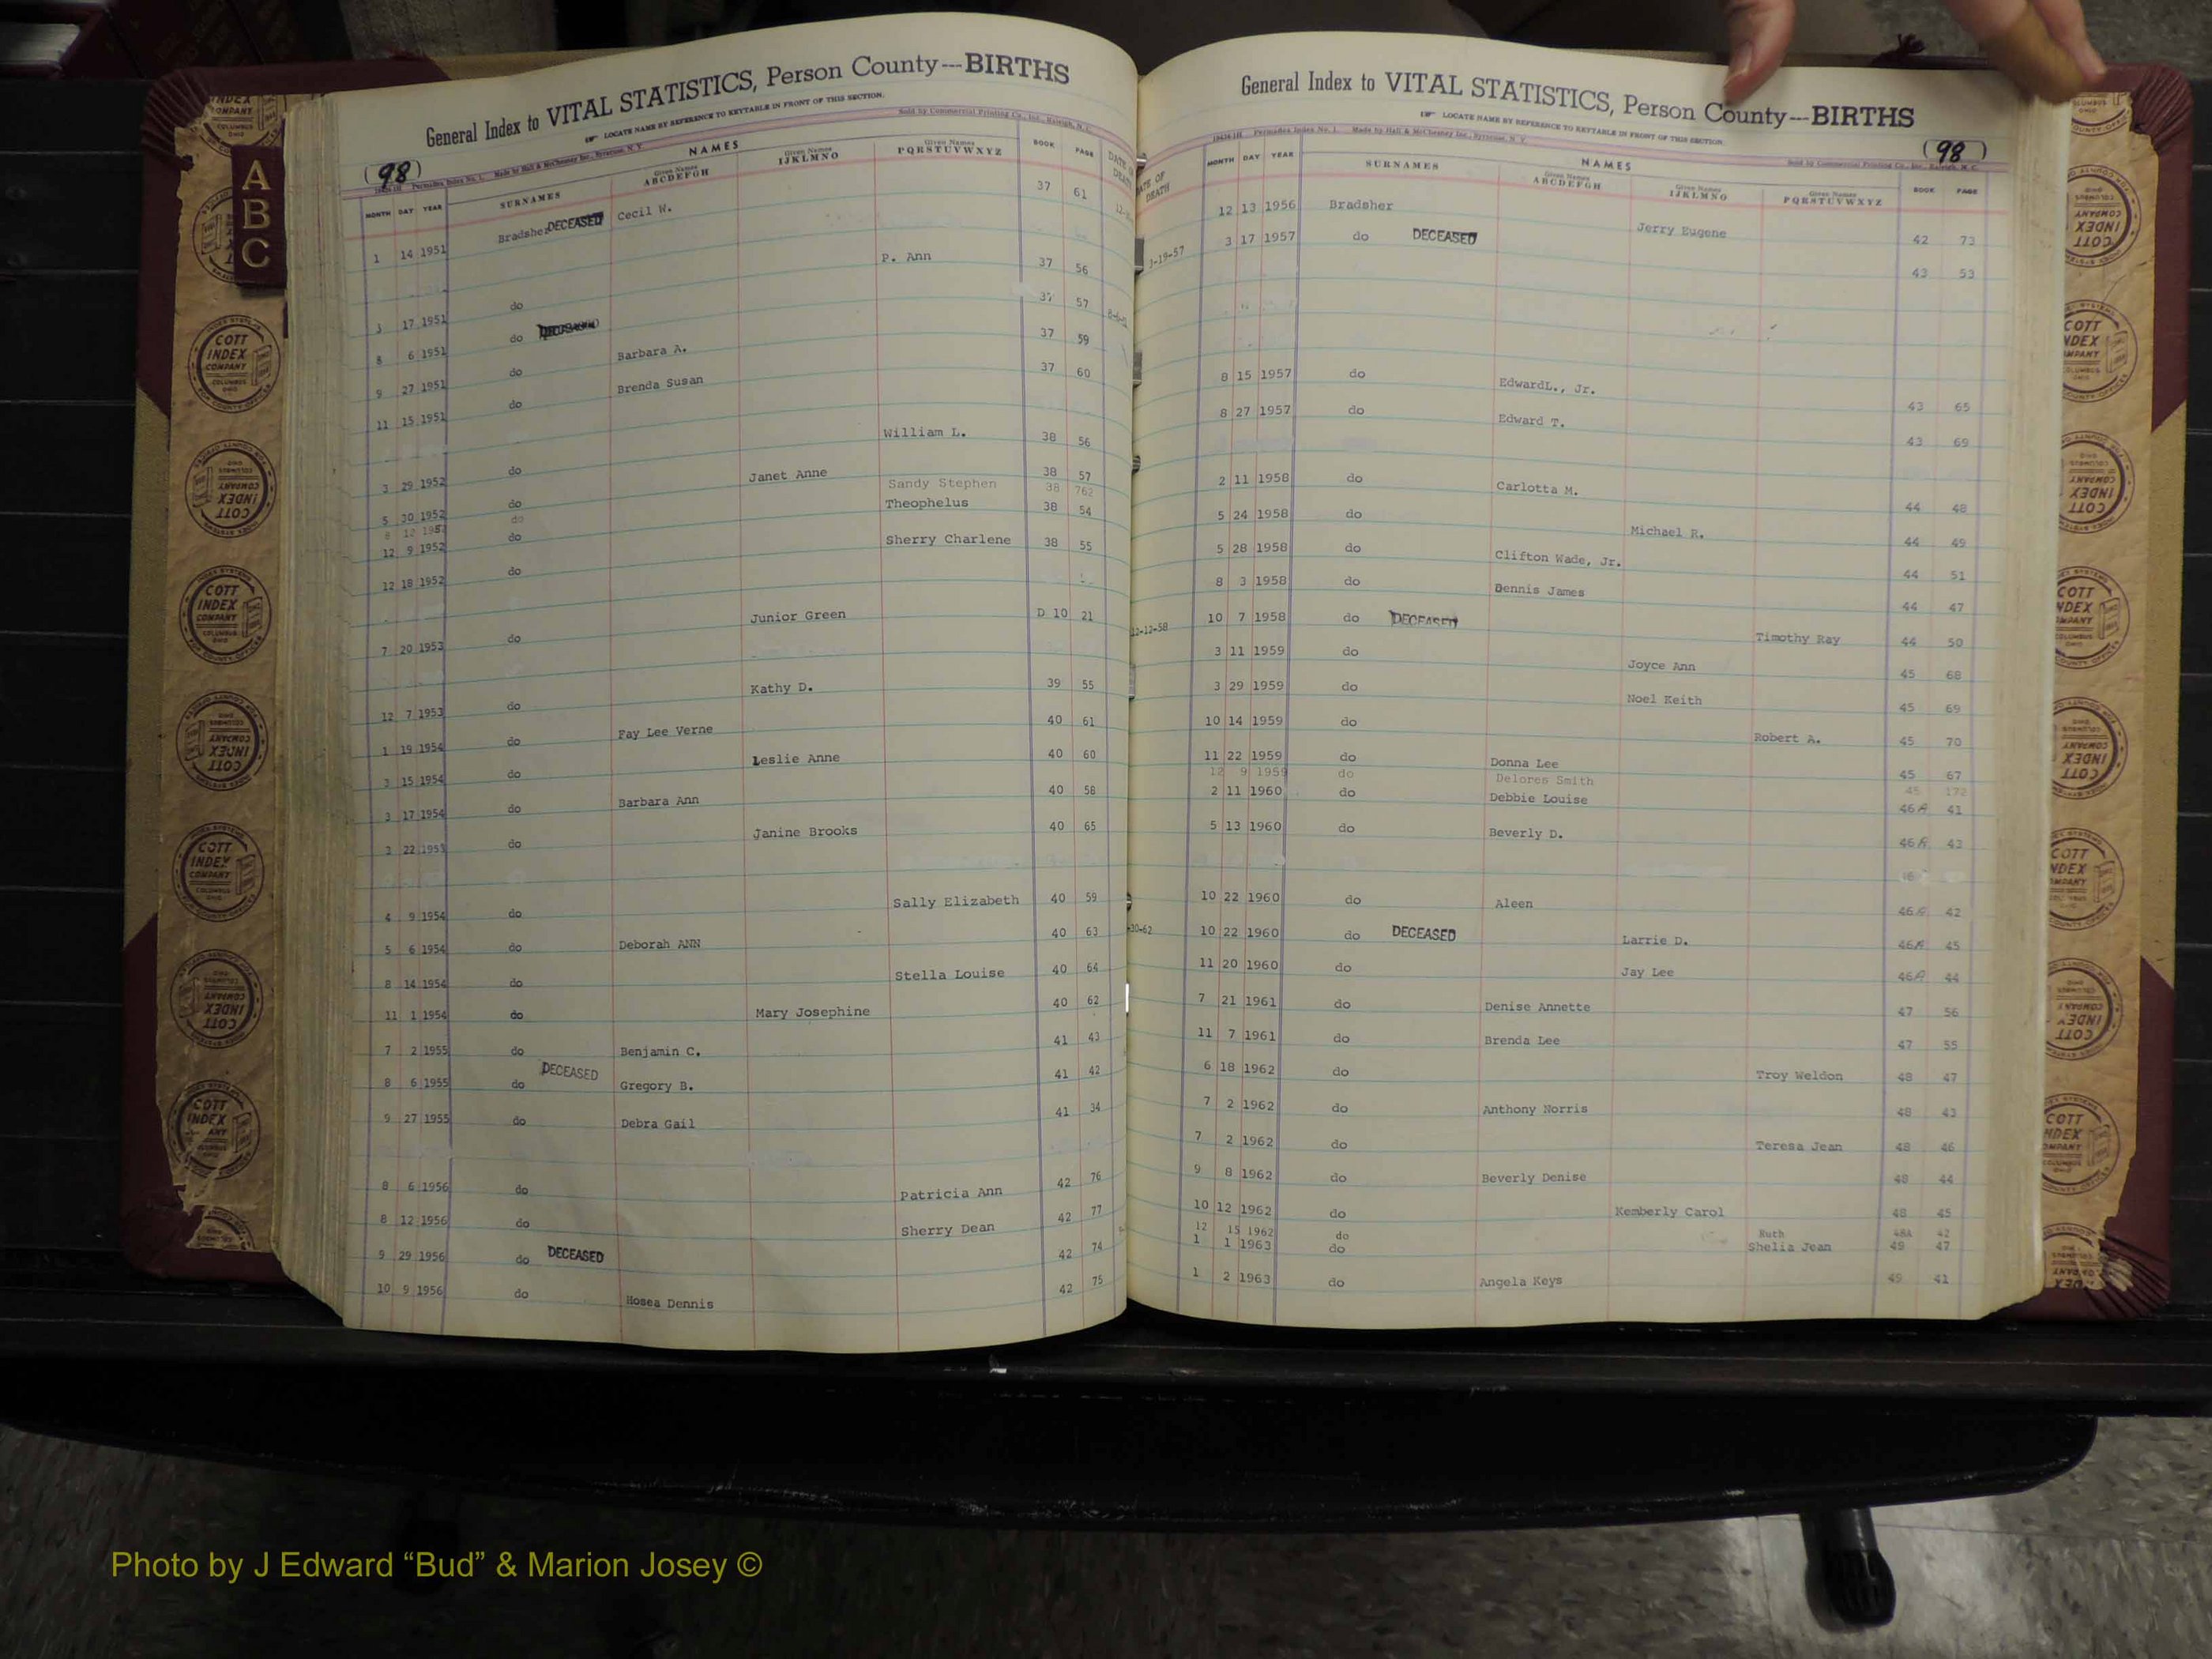 General Index to VITAL STATISTICS, Person County---BIRTHS
LOCATE NAME BY REFERENCE TO KEYTABLE IN FRONT OF THIS SECTION.
Sold by Commercial Printing Co., Inc., Raleigh, N. C.
(98)
Permadex Index No. 1. Made by Hall & McChesney Inc., Syracuse, N. Y.
NAMES
MONTH DAY YEAR SURNAMES Given Names ABCDEFGH Given Names IJKLMNO Given Names PQRSTUVWXYZ BOOK PAGE DATE OF DEATH
1 14 1951 Bradsher DECEASED Cecil W. 37 61
17 1951 do P. Ann 37 56
8 6 1951 do 37 57
9 27 1951 do Barbara A. 37 59
11 15 1951 do Brenda Susan 37 60
3 29 1952 do William L. 38 56
5 30 1952 do Janet Anne 38 57
8 12 1952 do Sandy Stephen 38 762
12 9 1952 do Theophelus 38 54
12 18 1952 do Sherry Charlene 38 55
7 20 1953 do Junior Green D 10 21
12 7 1953 do Kathy D. 39 55
1 19 1954 do Fay Lee Verne 40 61
3 15 1954 do Leslie Anne 40 60
3 17 1954 do Barbara Ann 40 58
3 22 1953 do Janine Brooks 40 65
4 9 1954 do Sally Elizabeth 40 59
5 6 1954 do Deborah ANN 40 63
8 14 1954 do Stella Louise 40 64
11 1 1954 do Mary Josephine 40 62
7 2 1955 do Benjamin C. 41 43
8 6 1955 do DECEASED Gregory B. 41 42
9 27 1955 do Debra Gail 41 34
8 6 1956 do Patricia Ann 42 76
8 12 1956 do Sherry Dean 42 77
9 29 1956 do DECEASED 42 74
10 9 1956 do Hosea Dennis 42 75
General Index to VITAL STATISTICS, Person County---BIRTHS
LOCATE NAME BY REFERENCE TO KEYTABLE IN FRONT OF THIS SECTION.
Permadex Index No. 1. Made by Hall & McChesney Inc., Syracuse, N. Y.
(98)
Sold by Commercial Printing Co., Inc., Raleigh, N. C.
NAMES
DATE OF DEATH MONTH DAY YEAR SURNAMES Given Names ABCDEFGH Given Names IJKLMNO Given Names PQRSTUVWXYZ BOOK PAGE
12 13 1956 Bradsher Jerry Eugene 42 73
3-19-57 3 17 1957 do DECEASED 43 53
8 15 1957 do EdwardL., Jr. 43 65
8 27 1957 do Edward T. 43 69
2 11 1958 do Carlotta M. 44 48
5 24 1958 do Michael R. 44 49
5 28 1958 do Clifton Wade, Jr. 44 51
8 3 1958 do Dennis James 44 47
12-12-58 10 7 1958 do DECEASED Timothy Ray 44 50
3 11 1959 do Joyce Ann 45 68
3 29 1959 do Noel Keith 45 69
10 14 1959 do Robert A. 45 70
11 22 1959 do Donna Lee 45 67
12 9 1959 do Delores Smith 45 172
2 11 1960 do Debbie Louise 46A 41
5 13 1960 do Beverly D. 46A 43
10 22 1960 do Aleen 46A 42
30-62 10 22 1960 do DECEASED Larrie D. 46A 45
11 20 1960 do Jay Lee 46A 44
7 21 1961 do Denise Annette 47 56
11 7 1961 do Brenda Lee 47 55
6 18 1962 do Troy Weldon 48 47
7 2 1962 do Anthony Norris 48 43
7 2 1962 do Teresa Jean 48 46
9 8 1962 do Beverly Denise 48 44
10 12 1962 do Kemberly Carol 48 45
12 15 1962 do Ruth 48A 42
1 1 1963 do Shelia Jean 49 47
1 2 1963 do Angela Keys 49 41
A
B
C
COTT INDEX COMPANY COLUMBUS OHIO
Photo by J Edward “Bud” & Marion Josey ©